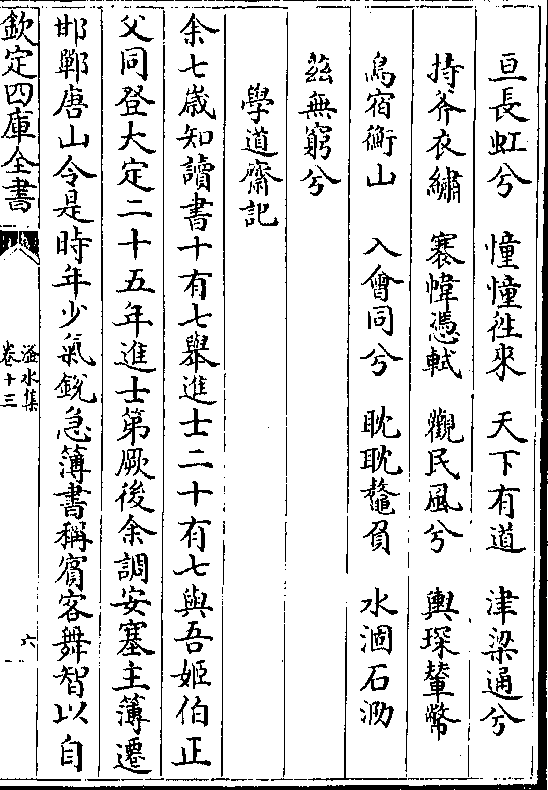 亘長虹兮　憧憧徃來　天下有道　津梁通兮
持斧衣繡　褰幃憑軾　觀民風兮　輿琛輦幣
鳥宿衡山　入㑹同兮　耽耽鼇負　水涸石泐
兹無窮兮
學道齋記
余七歲知讀書十有七舉進士二十有七與吾姬伯正
父同登大定二十五年進士第厥後余調安塞主簿遷
邯鄲唐山令是時年少氣銳急簿書稱賔客舞智以自
欽定四庫全書
滏水集
卷十三
六